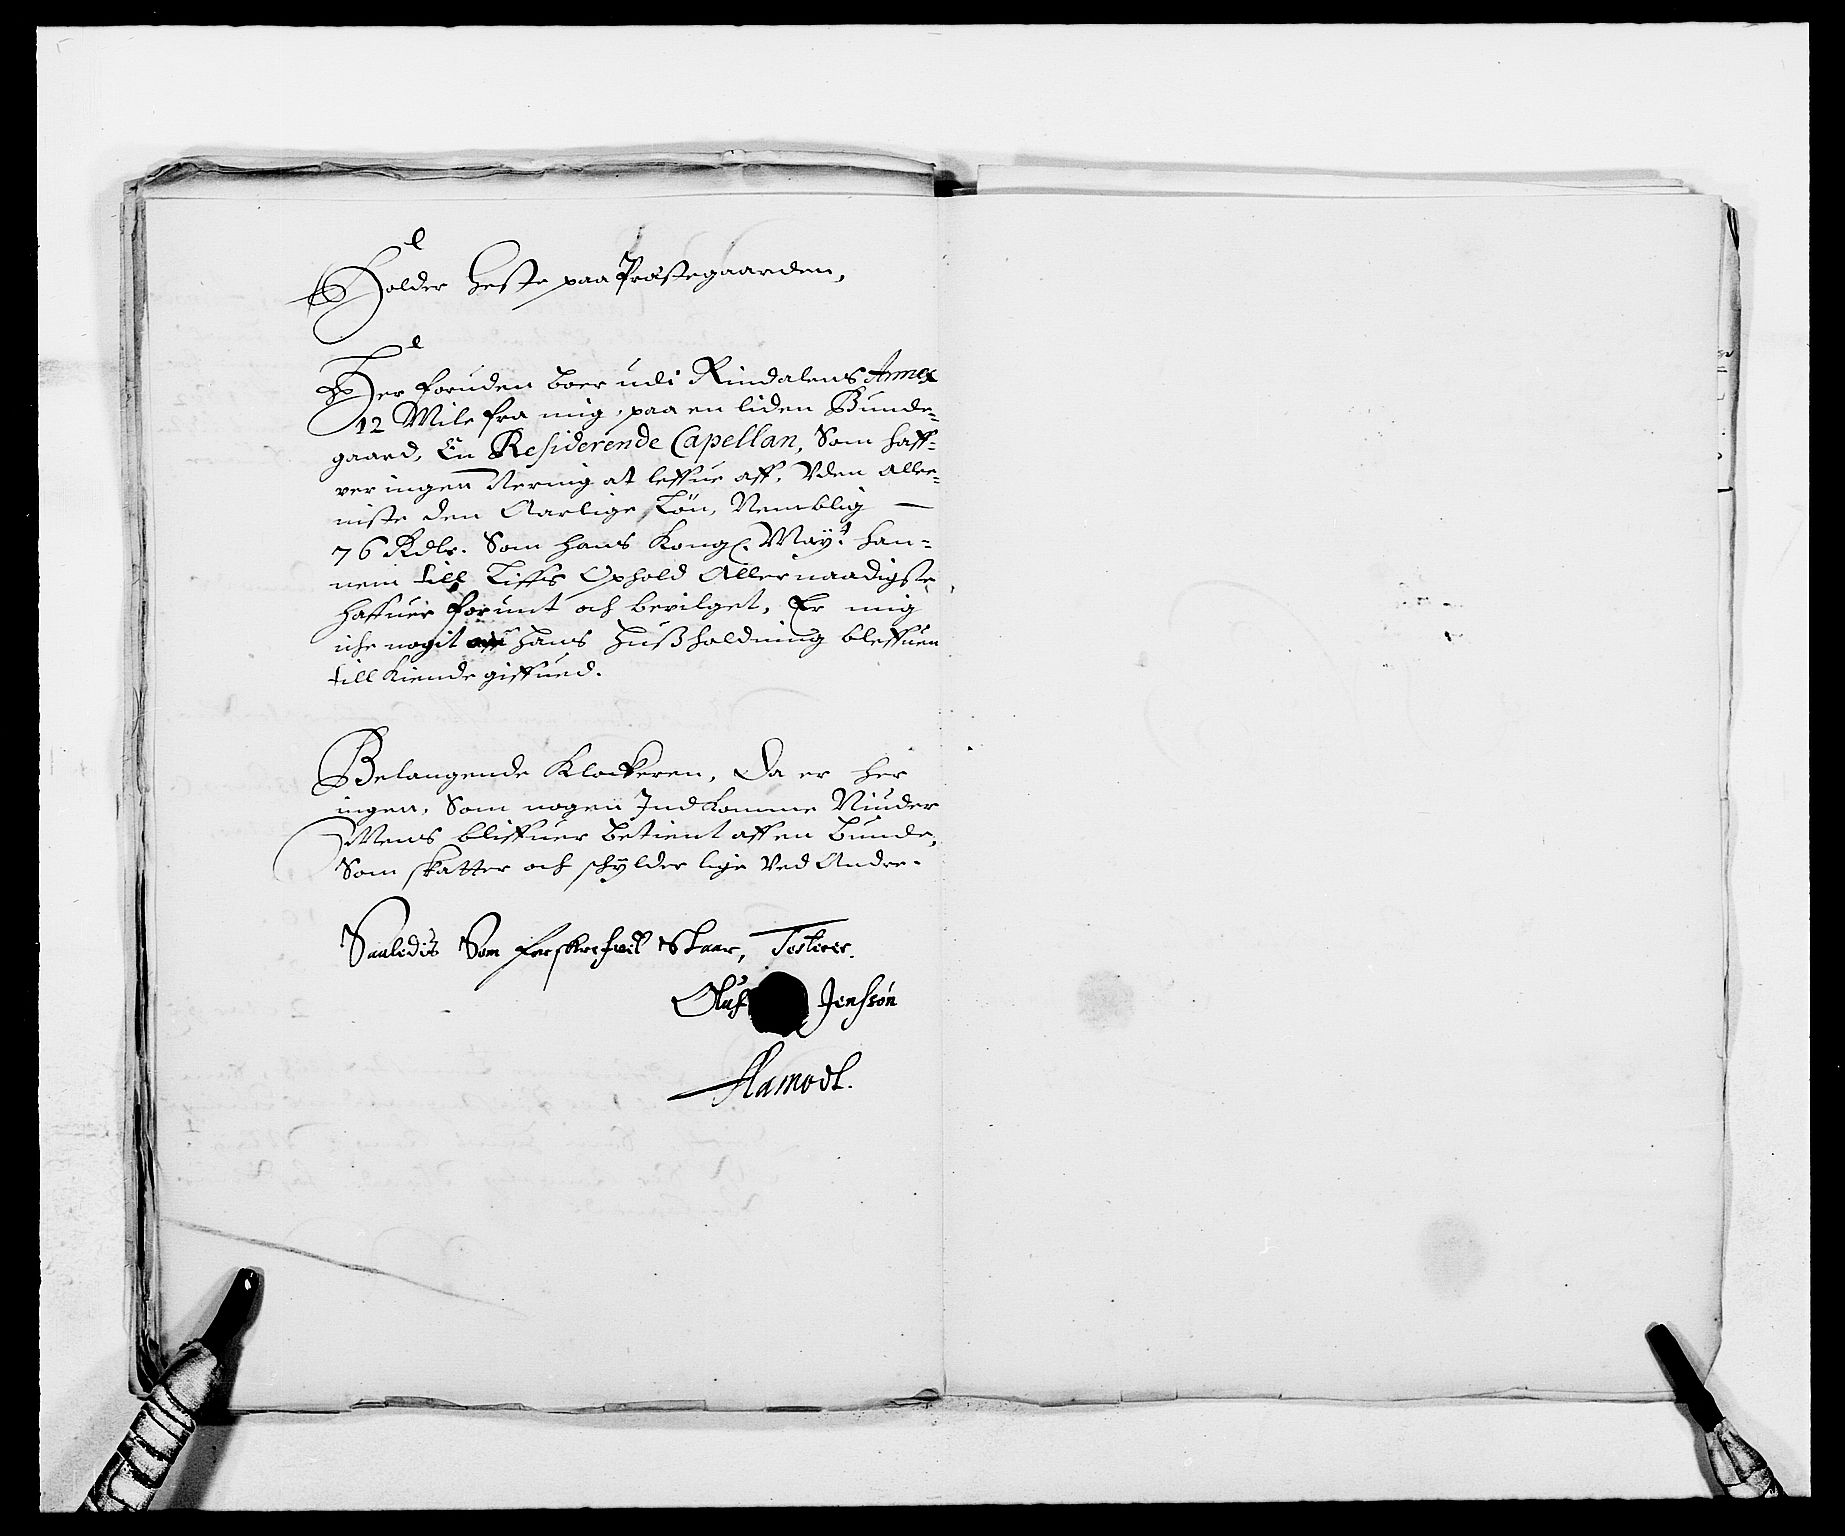 Holder Heste paa Præstegaarden,
Her foruden boer udi Rindalens Annex
12 Mile fra mig, paa en liden Bunde-
gaard, En Residerende Capellan, Som haff-
ver ingen Nering at leffue aff, Vden alle-
niste den Aarlige Løn, Nemblig —
76 Rdlr. Som hans Kongl. Mayt. han-
nem till Liffs Ophold Allernaadigste
haffuer forunt och bevilget, Er mig
iche nogit om hans Hußholdning bleffuen
till kiende giffued.
Belangende Klockeren, Da er her
ingen, Som nogen Indkomme Niuder
Mens bliffuer betient aff en Bunde,
Som skatter och schylder lige Ved Andre.
Saaledis Som forskrefuet Staar, Testerer.
Oluf Jenssøn
Hamodt.